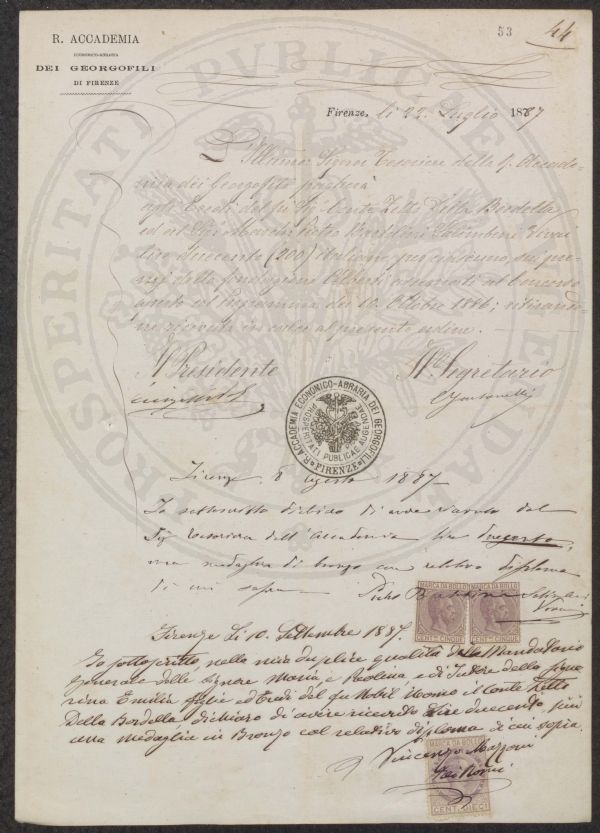 53
44
R. ACCADEMIA
ECONOMICO-AGRARIA
DEI GEORGOFILI
DI FIRENZE
Firenze, li 22. Luglio 1887
Signor Tesoriere della R. Accade-
mia dei Georgofili pagherà
agli Eredi del fu Conte Zetto Della Bordella
ed al Pietro
lire duecento (200) italiane per ciascuno dei pre-
mj della fondazione Alberti al Concorso
Programma dei 10 Ottobre 1886; ritirando-
ne ricevuta in calce al presente ordine. —
Il Presidente
Il Segretario
R. ACCADEMIA ECONOMICO-AGRARIA DEI GEORGOFILI
FIRENZE
PROSPERITATI PUBLICAE AUGENDAE
Firenze 8 agosto 1887
Io sottoscritto dichiaro di avere dal
Sig. Tesoriere dell'Accademia lire duecento,
una medaglia di bronzo con relativo diploma
di cui sopra
Pietro
MARCA DA BOLLO MARCA DA BOLLO
CENT. CINQUE CENT. CINQUE
Firenze Li 10. Settembre 1887.
Io sottoscritto nella mia duplice qualità di Mandatario
Generale delle Signore Maria e Paolina, e di Tutore della
Emilia figlie ed Eredi del fu Nobil Uomo il Conte Zetto
Della Bordella dichiaro di avere ricevuto Lire duecento, più
una medaglia in Bronzo col relativo diploma di cui sopra.
Vincenzo
MARCA DA BOLLO
CENT. DIECI
PROSPERITATI PUBLICAE AUGENDAE